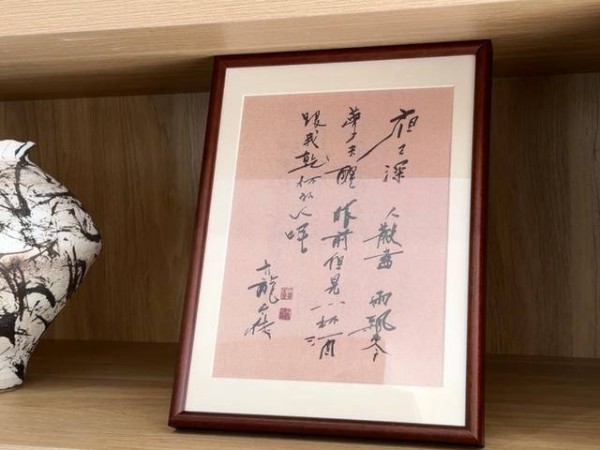 夜已深 人散盡 雨飄零
夢 醒 眼前但見一杯酒
跟我乾杯的人呢
古龍